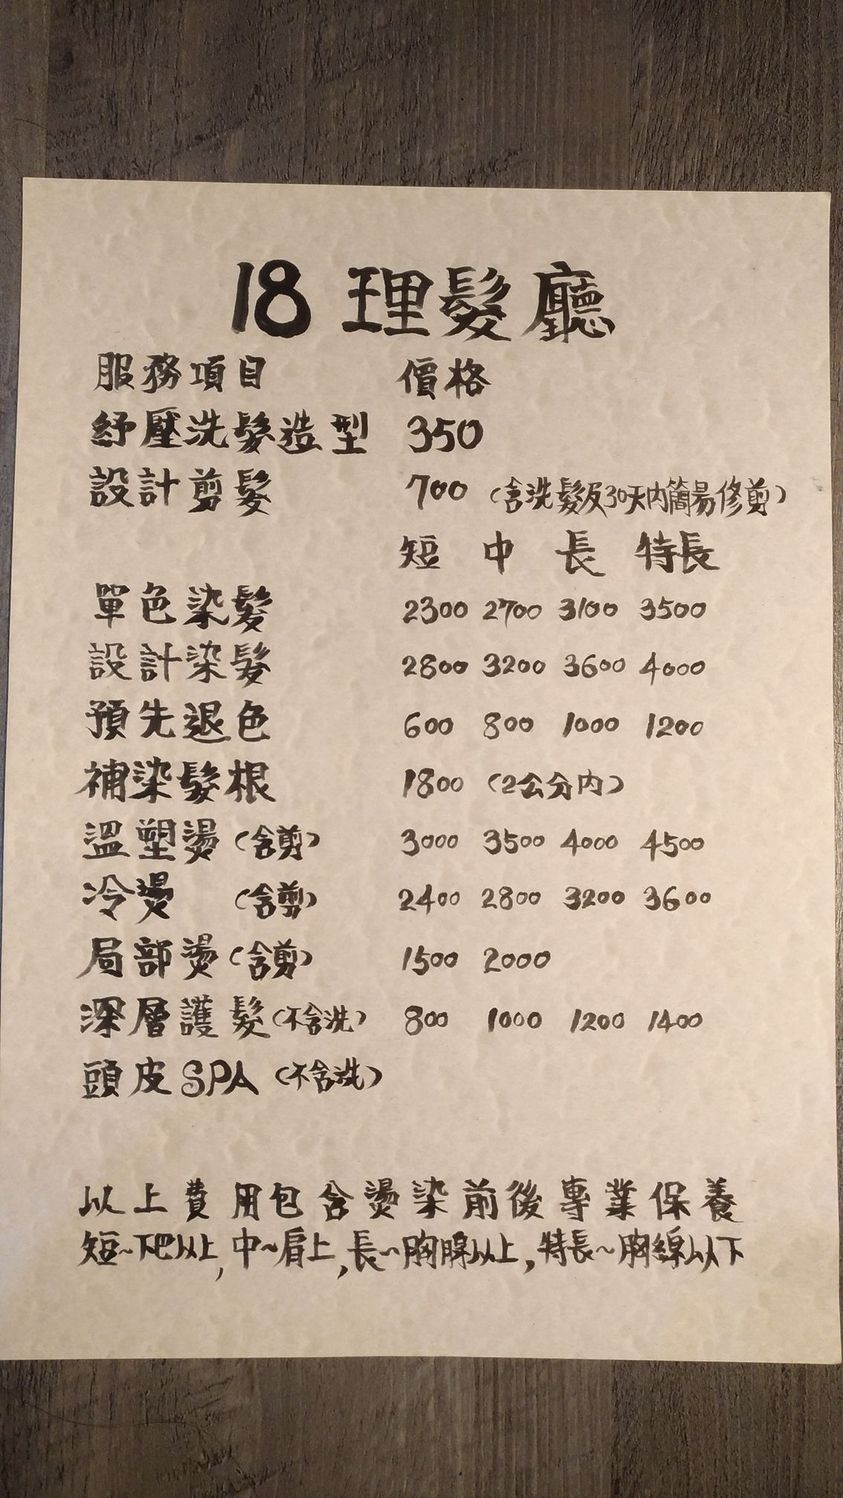 18 理髮廳
服務項目 價格
紓壓洗髮造型 350
設計剪髮 700 (含洗髮及30天內簡易修剪)
短 中 長 特長
單色染髮 2300 2700 3100 3500
設計染髮 2800 3200 3600 4000
預先退色 600 800 1000 1200
補染髮根 1800 (2公分內)
溫塑燙(含剪) 3000 3500 4000 4500
冷燙 (含剪) 2400 2800 3200 3600
局部燙(含剪) 1500 2000
深層護髮(不含洗) 800 1000 1200 1400
頭皮SPA(不含洗)
以上費用包含燙染前後專業保養
短~下巴以上,中~肩上,長~胸線以上,特長~胸線以下